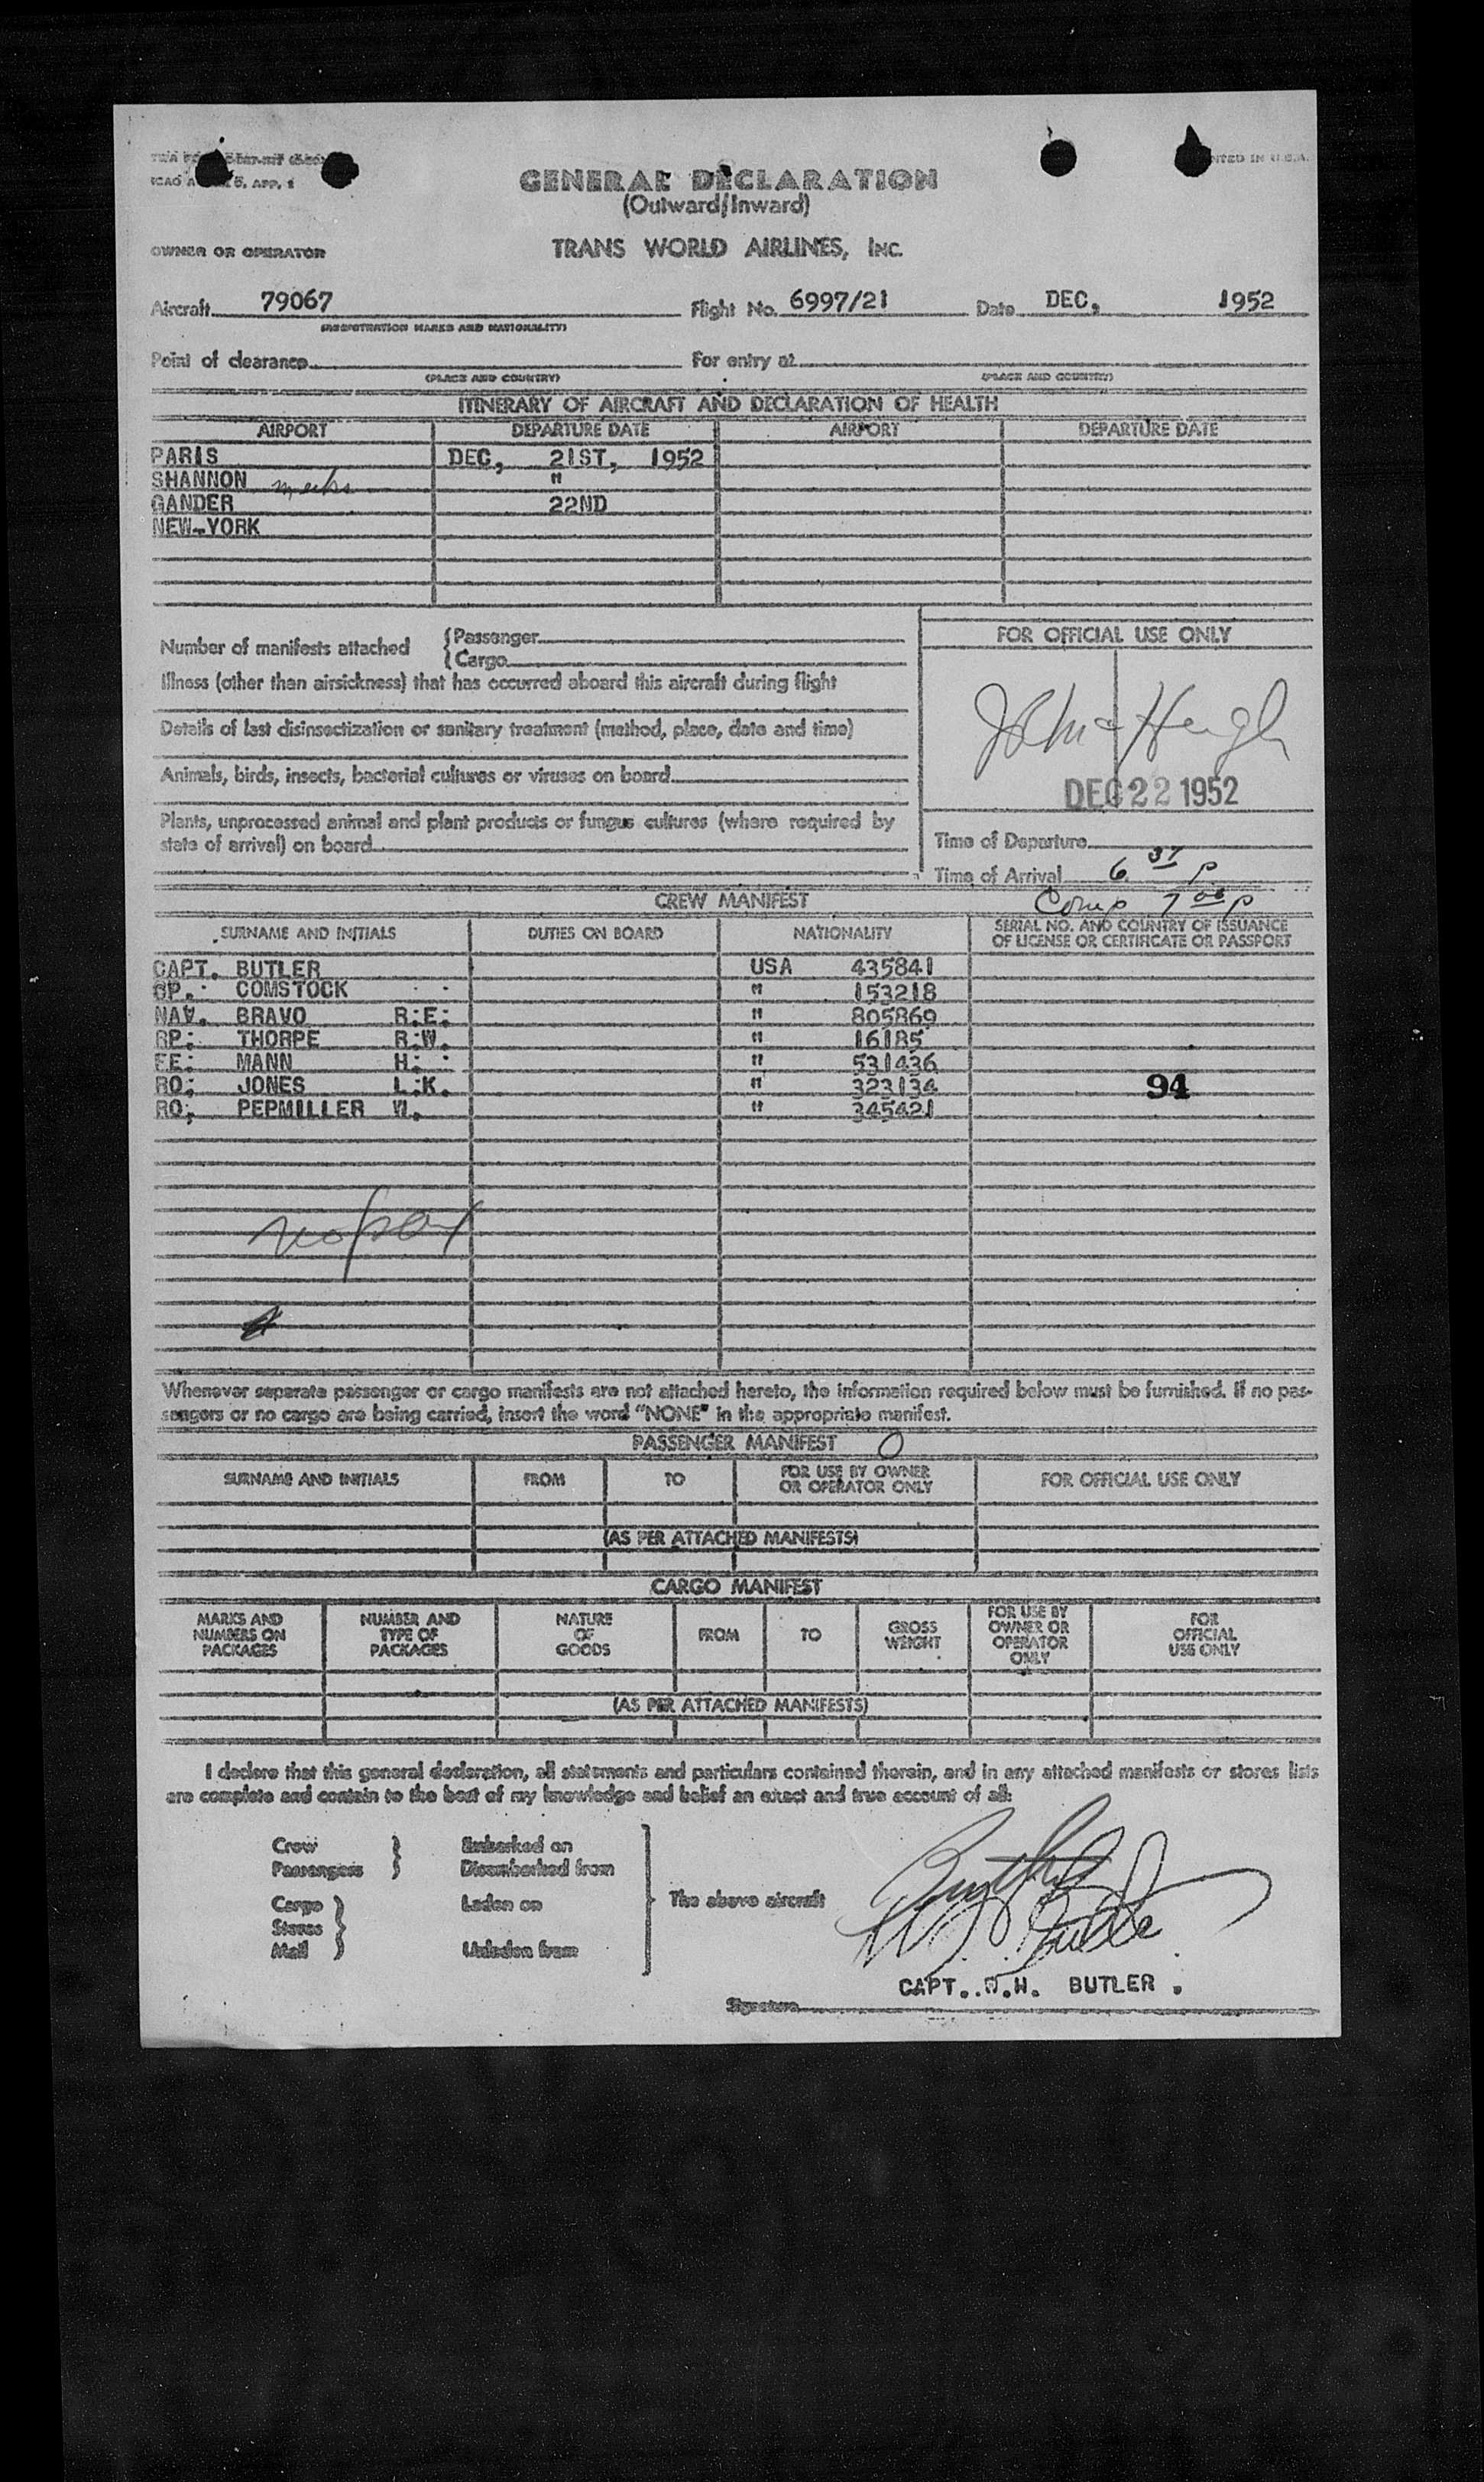 PRINTED IN U.S.A.
ICAO A 5, APP. 1
GENERAL DECLARATION
(Outward/Inward)
OWNER OR OPERATOR TRANS WORLD AIRLINES, INC.
Aircraft 79067 Flight No. 6997/21 Date DEC, 1952
(REGISTRATION MARKS AND NATIONALITY)
Point of clearance For entry at
(PLACE AND COUNTRY) (PLACE AND COUNTRY)
ITINERARY OF AIRCRAFT AND DECLARATION OF HEALTH
AIRPORT DEPARTURE DATE AIRPORT DEPARTURE DATE
PARIS DEC, 21ST, 1952
SHANNON "
GANDER 22ND
NEW-YORK
Number of manifests attached { Passenger
{ Cargo
FOR OFFICIAL USE ONLY
Illness (other than airsickness) that has occurred aboard this aircraft during flight
Details of last disinsectization or sanitary treatment (method, place, date and time)
Animals, birds, insects, bacterial cultures or viruses on board
DEC 22 1952
Plants, unprocessed animal and plant products or fungus cultures (where required by
state of arrival) on board
Time of Departure
Time of Arrival 6 37 P
Comp 7 00 P
CREW MANIFEST
SURNAME AND INITIALS DUTIES ON BOARD NATIONALITY SERIAL NO. AND COUNTRY OF ISSUANCE
OF LICENSE OR CERTIFICATE OR PASSPORT
CAPT. BUTLER USA 435841
COMSTOCK " 153218
NAV. BRAVO R.E. " 805869
RP: THORPE R.W. " 16185
FE: MANN H. " 531436
RO; JONES L.K. " 323134
94
RO; PEPMILLER W. " 345421
no pax
Whenever separate passenger or cargo manifests are not attached hereto, the information required below must be furnished. If no pas-
sengers or no cargo are being carried, insert the word "NONE" in the appropriate manifest.
PASSENGER MANIFEST 0
SURNAME AND INITIALS FROM TO FOR USE BY OWNER
OR OPERATOR ONLY FOR OFFICIAL USE ONLY
(AS PER ATTACHED MANIFESTS)
CARGO MANIFEST
MARKS AND
NUMBERS ON
PACKAGES
NUMBER AND
TYPE OF
PACKAGES
NATURE
OF
GOODS
FROM
TO
GROSS
WEIGHT
FOR USE BY
OWNER OR
OPERATOR
ONLY
FOR
OFFICIAL
USE ONLY
(AS PER ATTACHED MANIFESTS)
I declare that this general declaration, all statements and particulars contained therein, and in any attached manifests or stores lists
are complete and contain to the best of my knowledge and belief an exact and true account of all:
Crew } Embarked on
Passengers } Disembarked from
Cargo } Laden on
Stores
Mail } Unladen from
The above aircraft
Butler
CAPT. W.H. BUTLER.
Signature